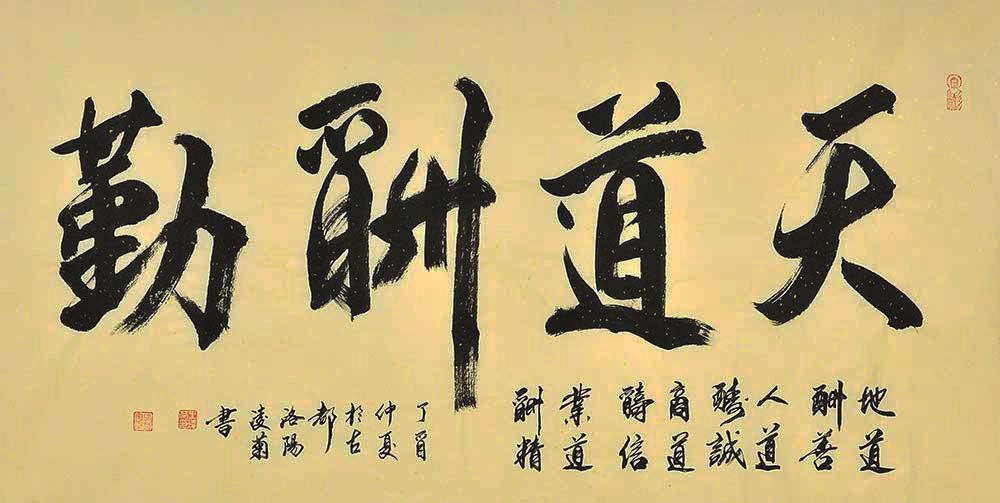 天道酬勤
地道
酬善
人道
醻誠
商道
醻信
業道
酬精
丁酉
仲夏
於古
都
洛陽
淩菊
書